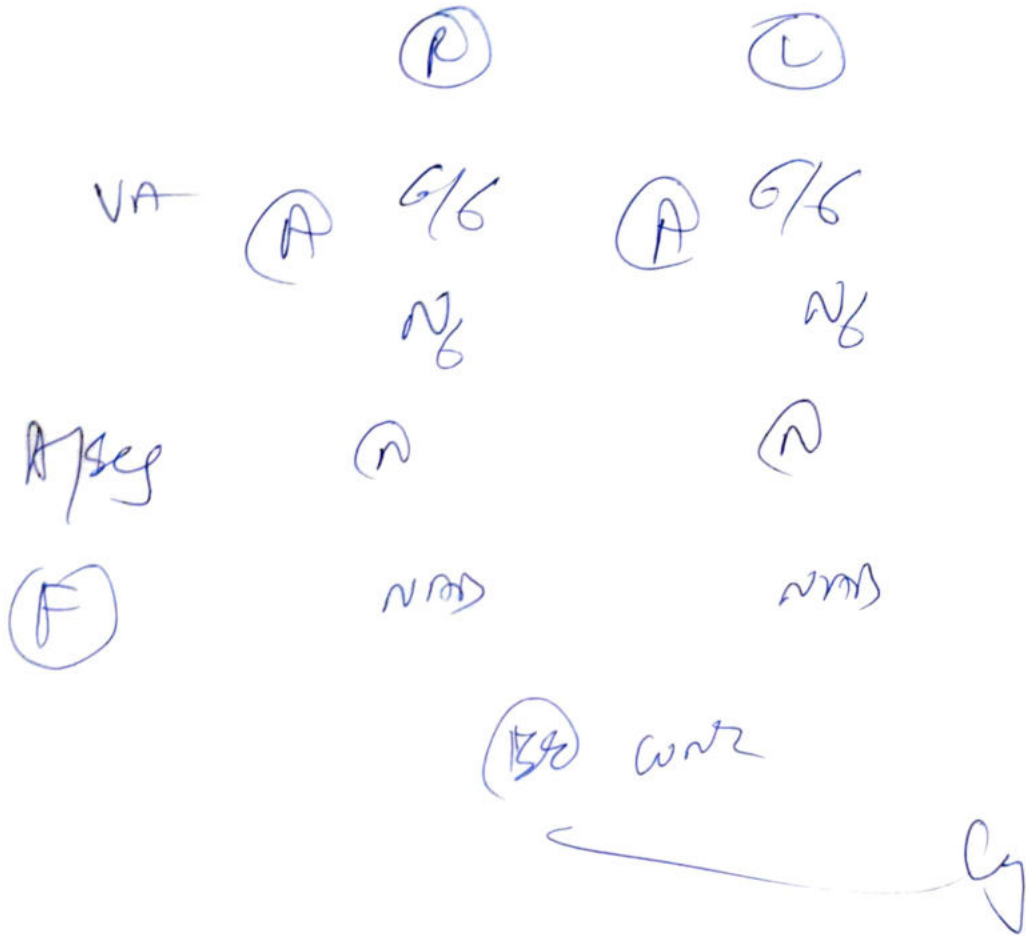 R L
VA A 6/6 A 6/6
N6 N6
A/seg N N
F NAD NAD